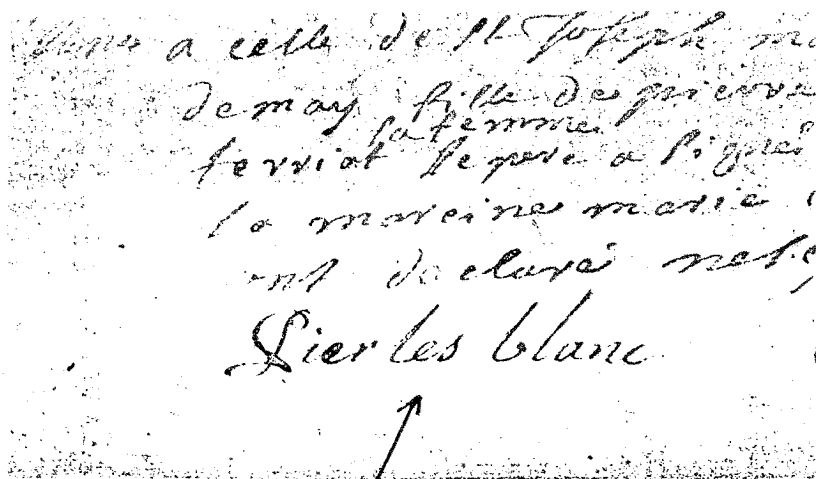 a celle de St Joseph
demay fille de pierre
sa femme
terriot le pere a signé
la mareine marie
ont declaré
Pier les blanc